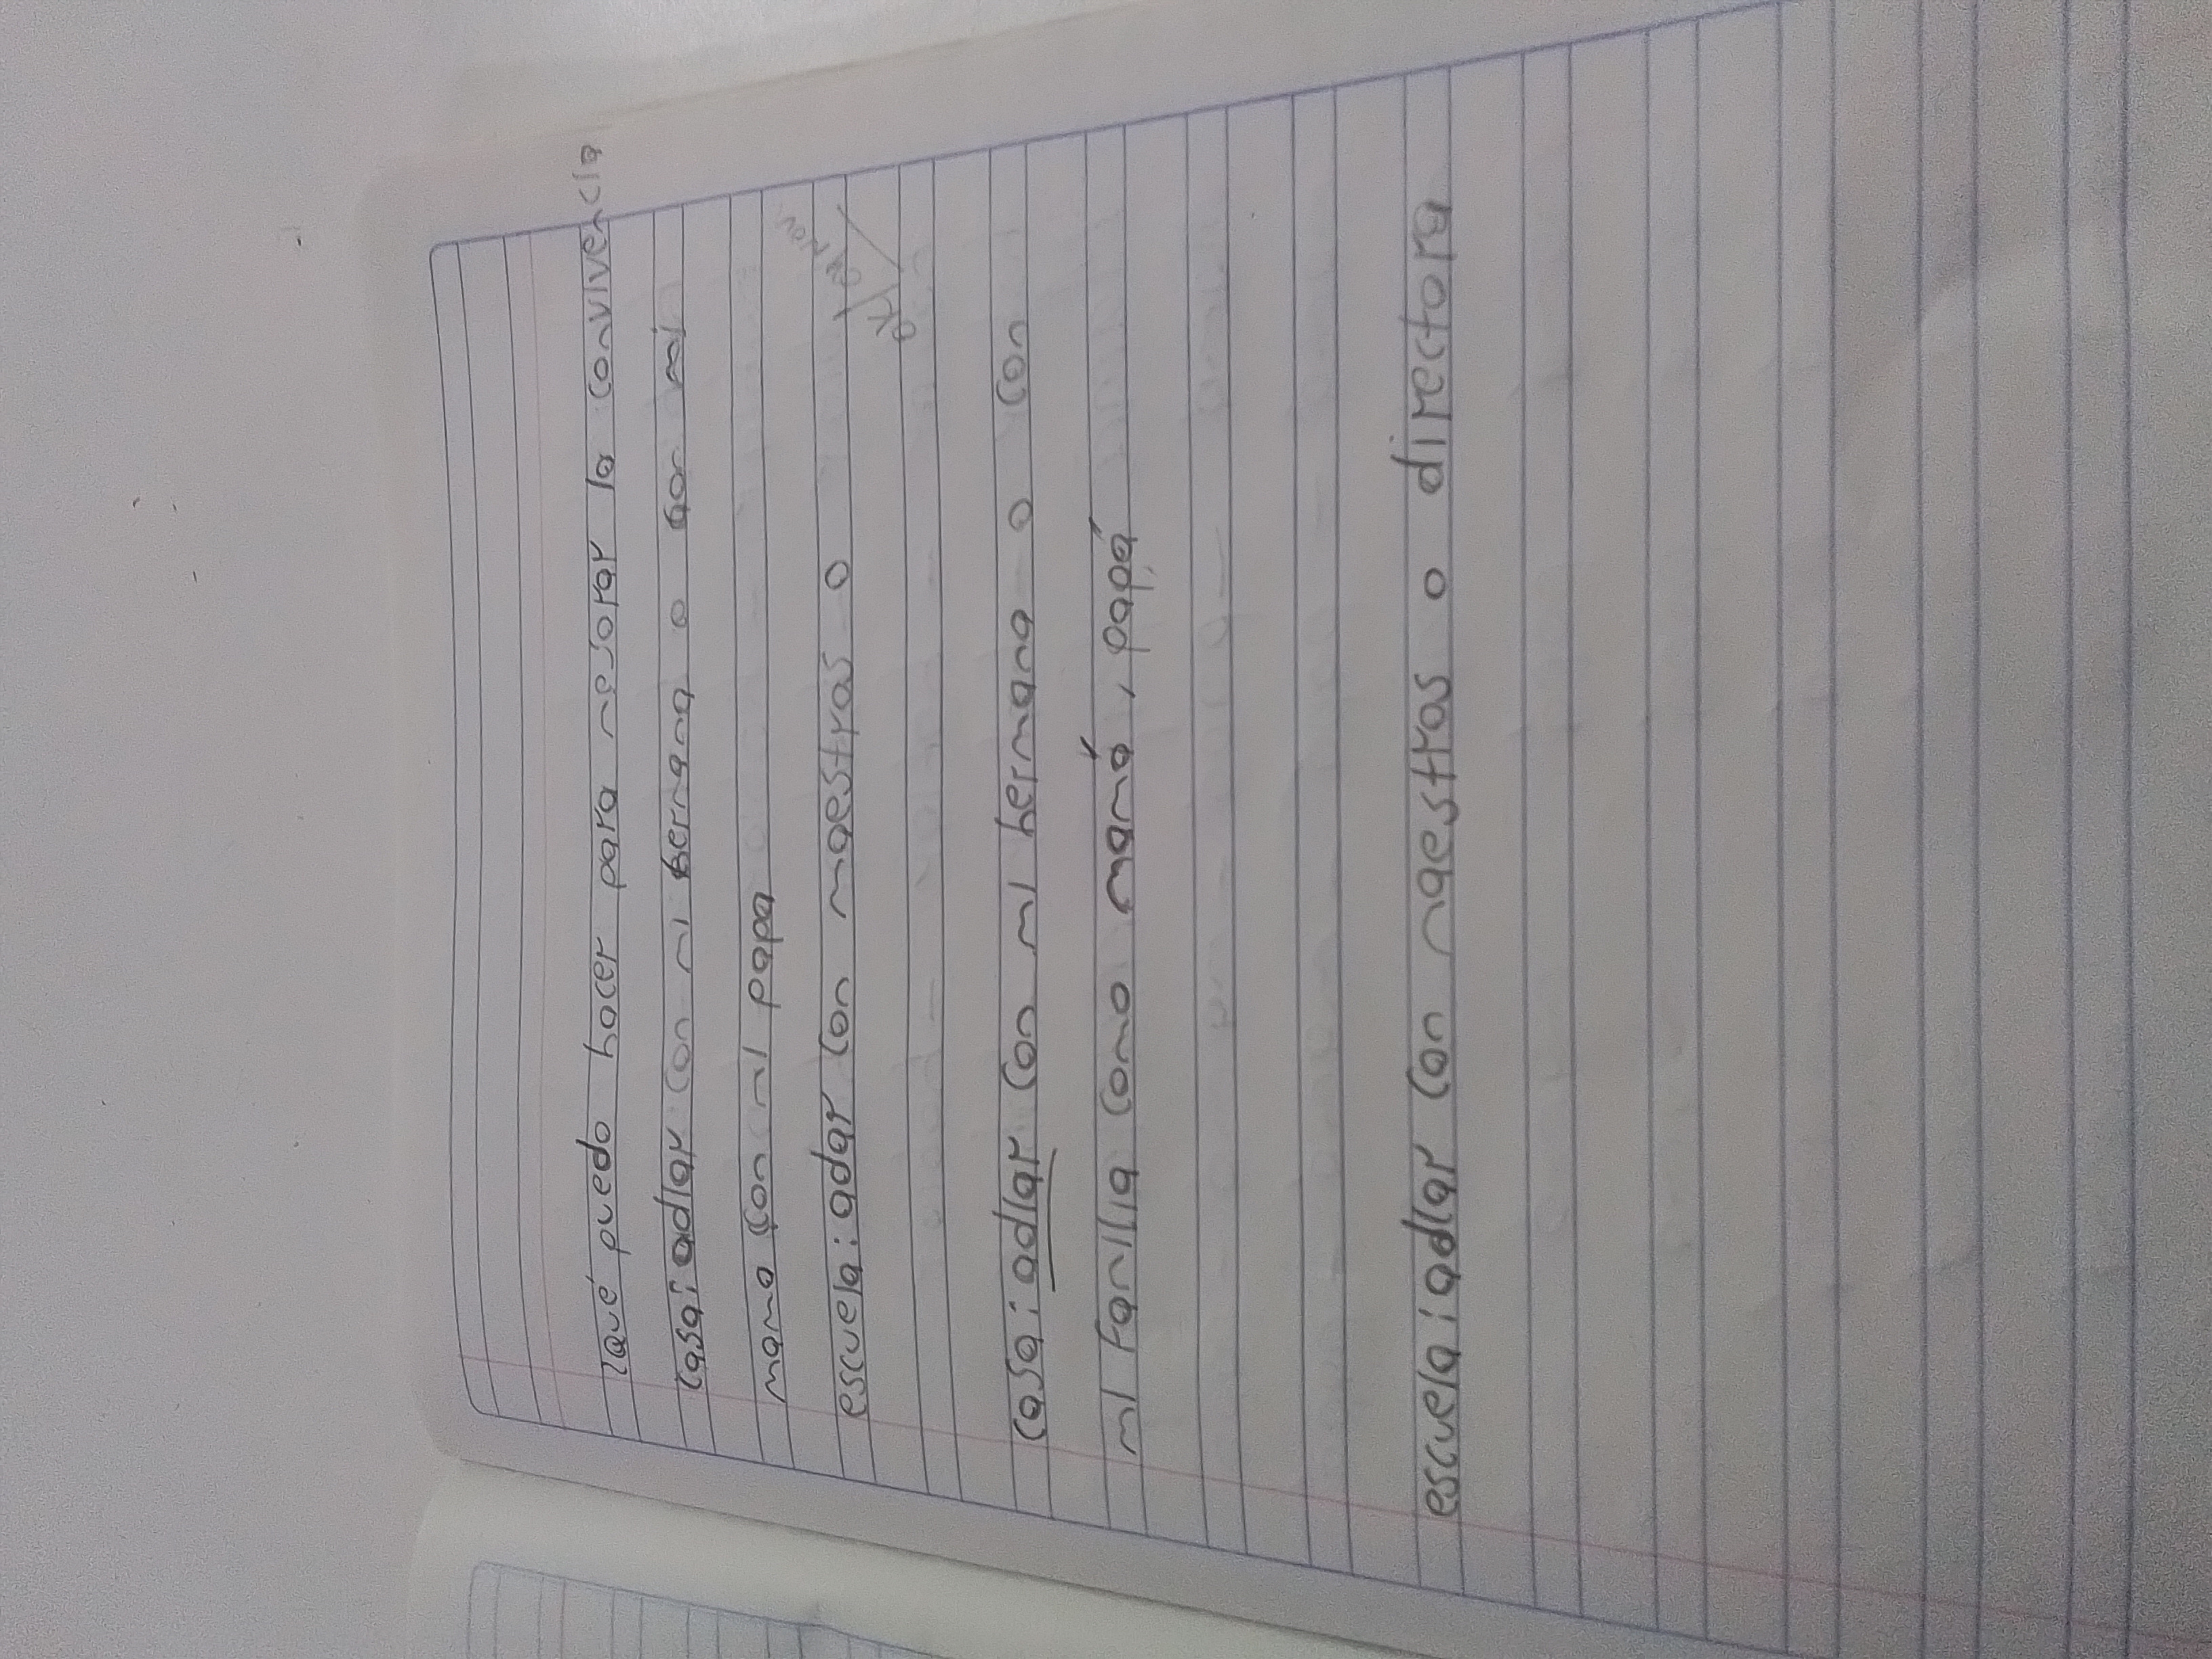 ¿qué puedo hacer para mesorar la convivencia
casa: adlar con mi hermano o con mi
mama con mi papa
escuela: adar con maestras o
casa: adlar con mi hermano o con
mi familia como mamá, papá
escuela: adlar con maestras o directora